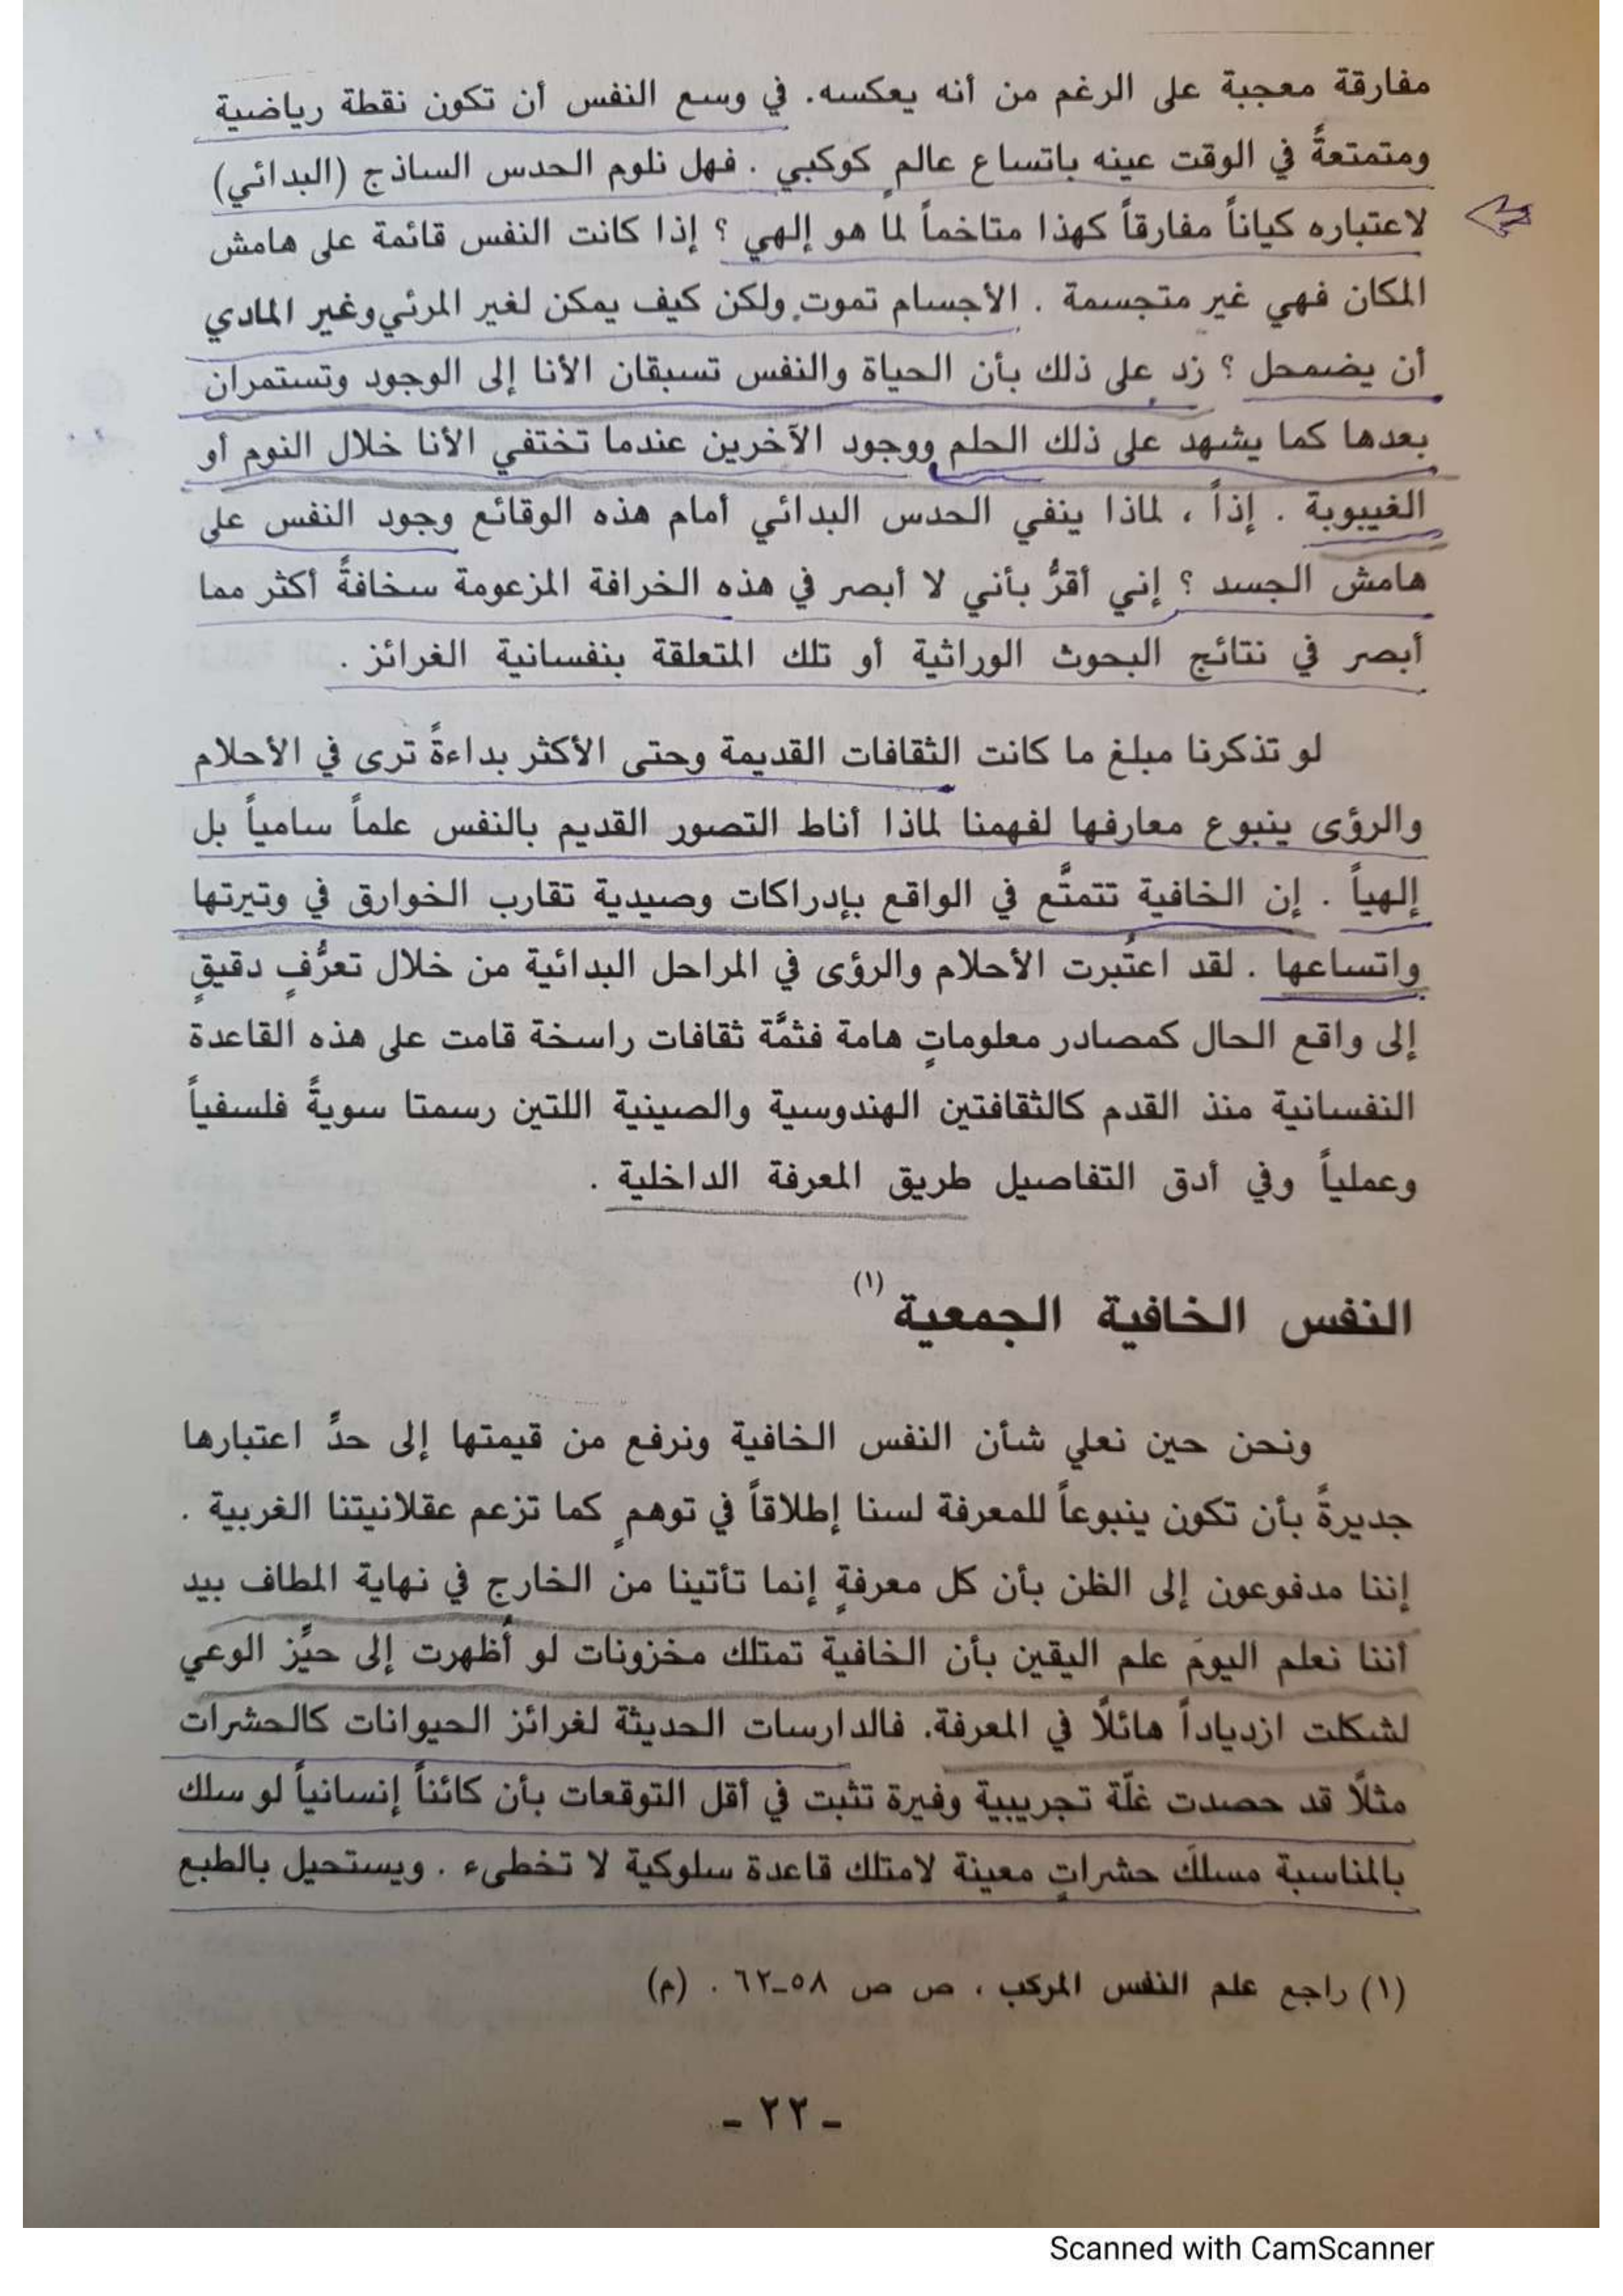 مفارقة معجبة على الرغم من أنه يعكسه. في وسع النفس أن تكون نقطة رياضية
ومتمتعةً في الوقت عينه باتساع عالمٍ كوكبي . فهل نلوم الحدس الساذج (البدائي)
لاعتباره كياناً مفارقاً كهذا متاخماً لما هو إلهي ؟ إذا كانت النفس قائمة على هامش
المكان فهي غير متجسمة . الأجسام تموت ولكن كيف يمكن لغير المرئي وغير المادي
أن يضمحل ؟ زد على ذلك بأن الحياة والنفس تسبقان الأنا إلى الوجود وتستمران
بعدها كما يشهد على ذلك الحلم ووجود الآخرين عندما تختفي الأنا خلال النوم أو
الغيبوبة . إذاً ، لماذا ينفي الحدس البدائي أمام هذه الوقائع وجود النفس على
هامش الجسد ؟ إني أقرُّ بأني لا أبصر في هذه الخرافة المزعومة سخافةً أكثر مما
أبصر في نتائج البحوث الوراثية أو تلك المتعلقة بنفسانية الغرائز .
لو تذكرنا مبلغ ما كانت الثقافات القديمة وحتى الأكثر بداءةً ترى في الأحلام
والرؤى ينبوع معارفها لفهمنا لماذا أناط التصور القديم بالنفس علماً سامياً بل
إلهياً . إن الخافية تتمتَّع في الواقع بإدراكات وصيدية تقارب الخوارق في وتيرتها
واتساعها . لقد اعتُبرت الأحلام والرؤى في المراحل البدائية من خلال تعرُّفٍ دقيقٍ
إلى واقع الحال كمصادر معلوماتٍ هامة فثمَّة ثقافات راسخة قامت على هذه القاعدة
النفسانية منذ القدم كالثقافتين الهندوسية والصينية اللتين رسمتا سويةً فلسفياً
وعملياً وفي أدق التفاصيل طريق المعرفة الداخلية .
النفس الخافية الجمعية (١)
ونحن حين نعلي شأن النفس الخافية ونرفع من قيمتها إلى حدِّ اعتبارها
جديرةً بأن تكون ينبوعاً للمعرفة لسنا إطلاقاً في توهمٍ كما تزعم عقلانيتنا الغربية .
إننا مدفوعون إلى الظن بأن كل معرفةٍ إنما تأتينا من الخارج في نهاية المطاف بيد
أننا نعلم اليومَ علم اليقين بأن الخافية تمتلك مخزونات لو أُظهرت إلى حيِّز الوعي
لشكلت ازدياداً هائلًا في المعرفة. فالدارسات الحديثة لغرائز الحيوانات كالحشرات
مثلًا قد حصدت غلّة تجريبية وفيرة تثبت في أقل التوقعات بأن كائناً إنسانياً لو سلك
بالمناسبة مسلكَ حشراتٍ معينة لامتلك قاعدة سلوكية لا تخطىء . ويستحيل بالطبع
(١) راجع علم النفس المركب ، ص ص ٥٨-٦٢ . (م)
- ٢٢ -
Scanned with CamScanner